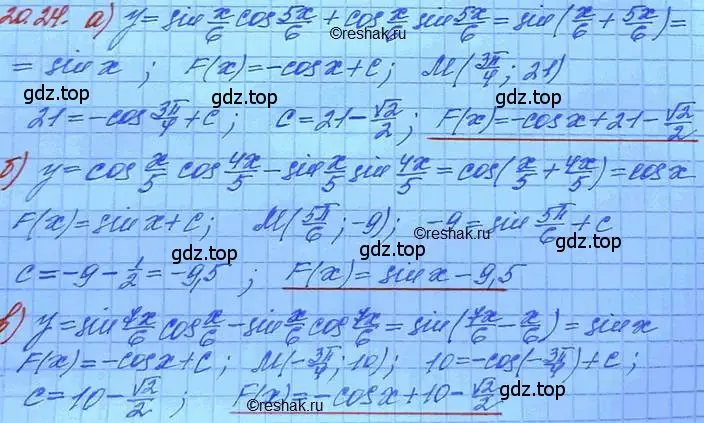 20.24. а) y = sin x/6 cos 5x/6 + cos x/6 sin 5x/6 = sin(x/6 + 5x/6) =
©reshak.ru
= sin x ; F(x) = -cos x + C ; M(3π/4 ; 21)
gdz.top gdz.top gdz.top
21 = -cos 3π/4 + C ; C = 21 - √2/2 ; F(x) = -cos x + 21 - √2/2
б) y = cos x/5 cos 4x/5 - sin x/5 sin 4x/5 = cos(x/5 + 4x/5) = cos x
F(x) = sin x + C ; M(5π/6 ; -9) ; -9 = sin 5π/6 + C
©reshak.ru
gdz.top gdz.top gdz.top
C = -9 - 1/2 = -9,5 ; F(x) = sin x - 9,5
в) y = sin 7x/6 cos x/6 - sin x/6 cos 7x/6 = sin(7x/6 - x/6) = sin x
F(x) = -cos x + C ; M(-3π/4 ; 10) ; 10 = -cos(-3π/4) + C ;
gdz.top gdz.top gdz.top
C = 10 - √2/2 ; F(x) = -cos x + 10 - √2/2
©reshak.ru